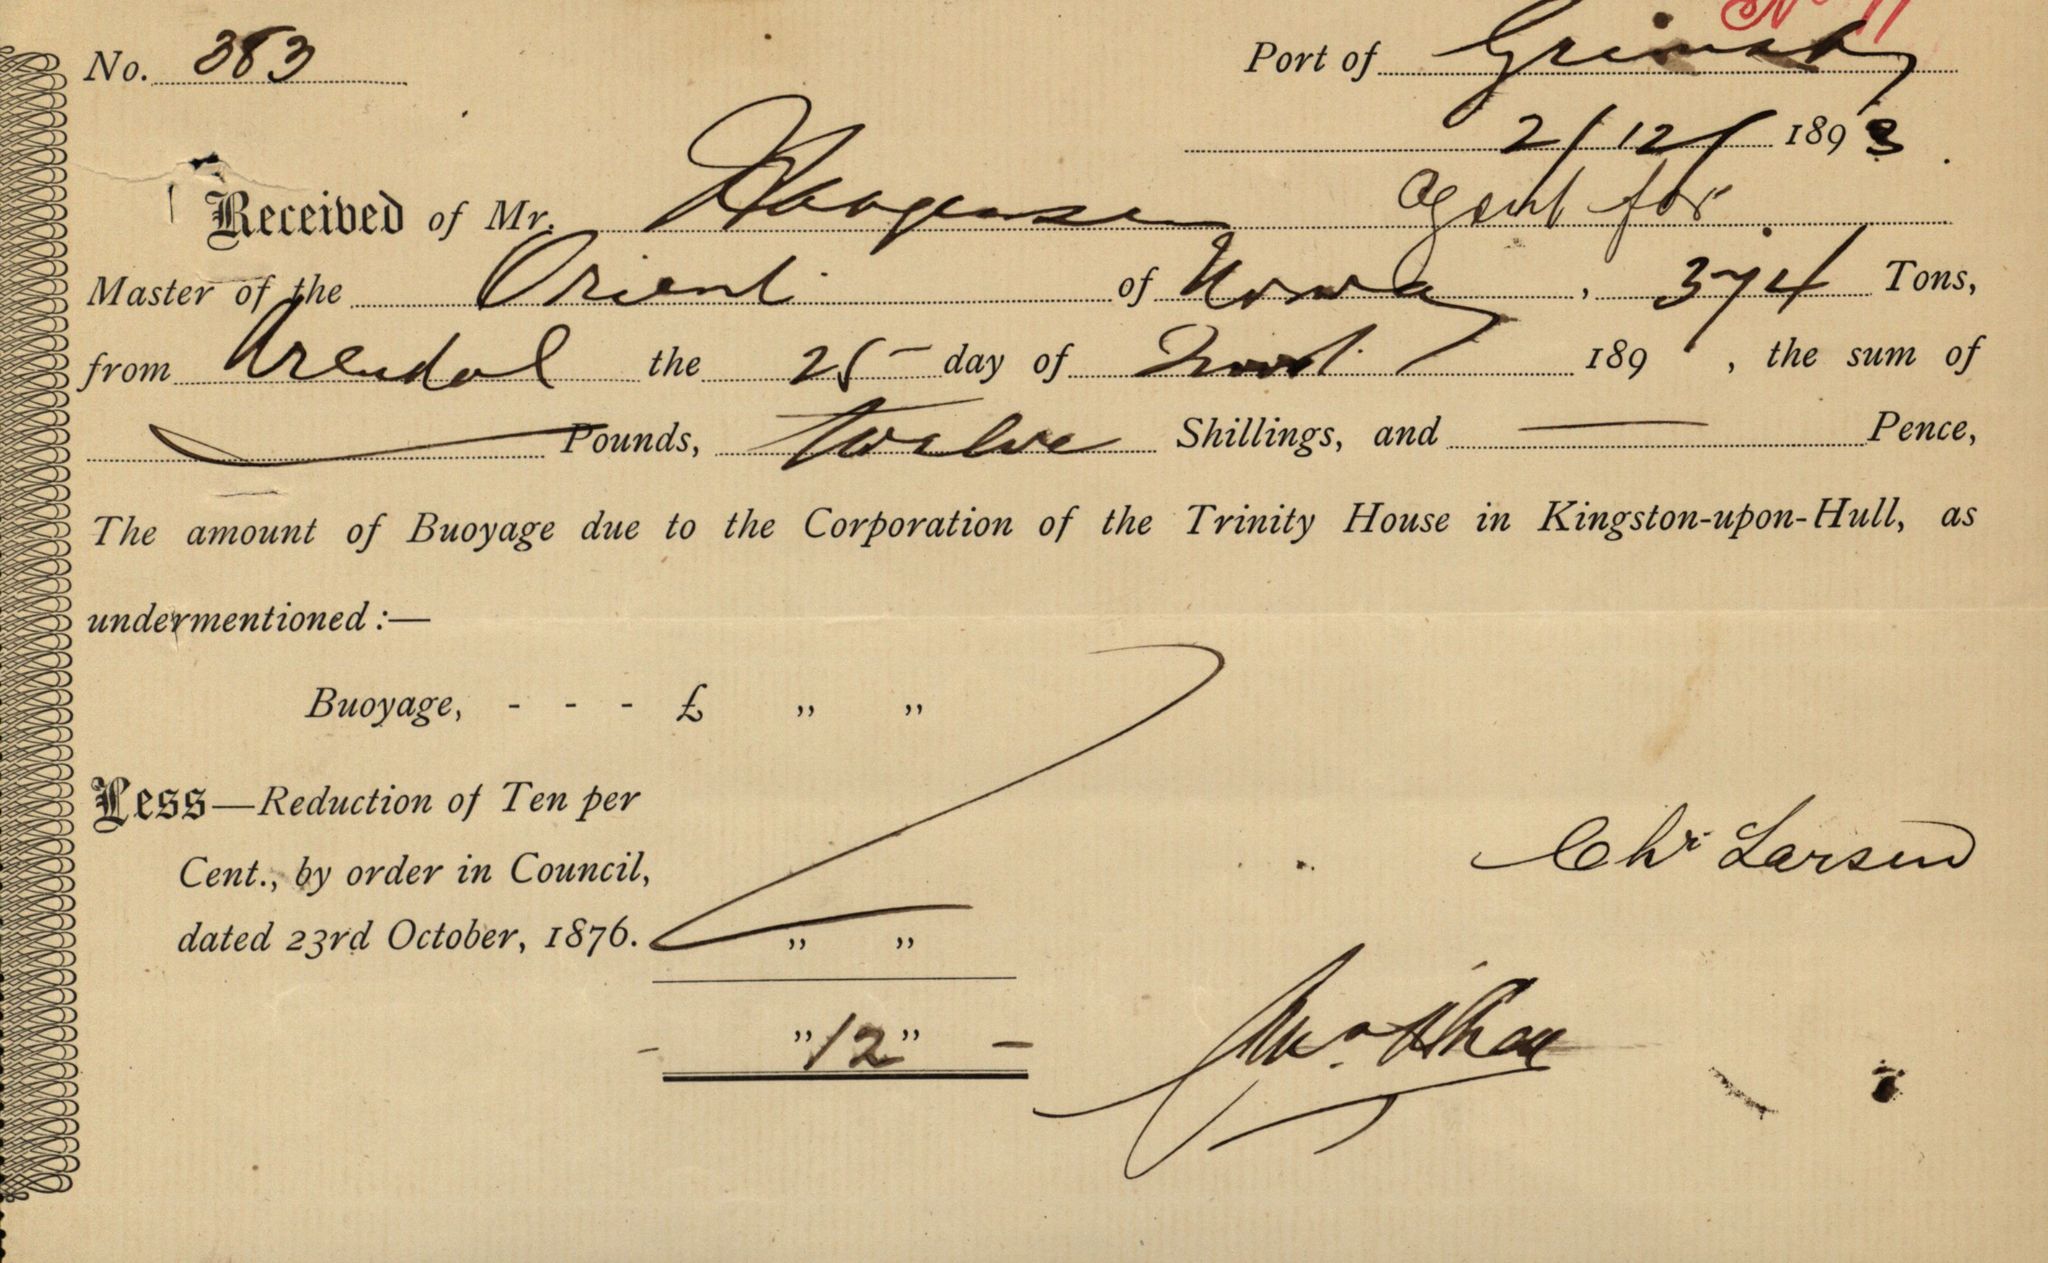 No 11
No. 383 Port of Grimsby
2/12/ 1893
Received of Mr. Haagensen agent for
Master of the Orient of Norway, 374 Tons,
from Arendal the 25 day of Novr. 189 , the sum of
— Pounds, twelve Shillings, and — Pence,
The amount of Buoyage due to the Corporation of the Trinity House in Kingston-upon-Hull, as
undermentioned :—
Buoyage, - - - £ ,, ,,
Less—Reduction of Ten per
Cent., by order in Council,
dated 23rd October, 1876. ,, ,,
Chr Larsen
- " 12 " -